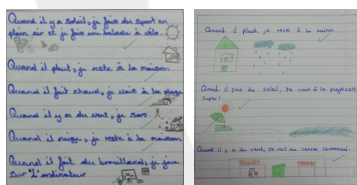 Quand il y a soleil, je fais du sport en
plein air et je fais une balade à vélo.
Quand il pleut, je reste à la maison
Quand il fait chaud, je vais à la plage
Quand il y a du vent, je sors
Quand il neige, je reste à la maison
Quand il fait du brouillard, je joue
sur l'ordinateur
Quand il pleut, je reste à la maison.
Quand il fait du soleil, je vais à la plage c'est
super!
Quand il y a du vent, je vais au centre commercial.